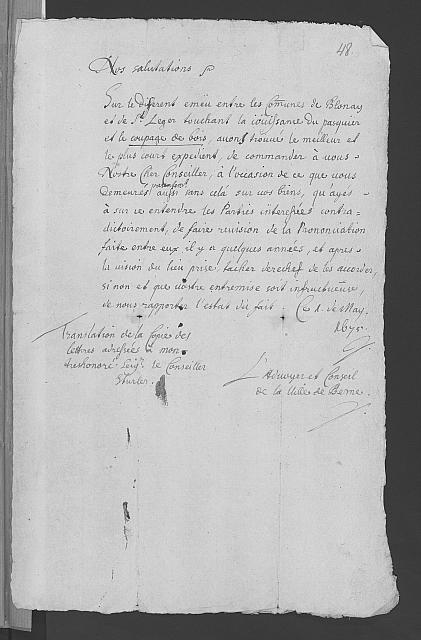 48.
Nos salutations
Sur le diferent emeu entre les Comunes de Blonay
et de St. Leger touchant la iouissance du pasquier
et le coupage de bois, avons trouué le meilleur et
le plus court expedient, de commander à vous
Nostre Cher Conseiller, à l'occasion de ce que vous
demeurés parensont aussi sans celà sur vos biens, qu'ayés
à sur ce entendre les Parties interessées contra=
dictoirement, de faire revision de la Prononciation
faite entre eux il y a quelques années, et apres
la vision du lieu prise, tascher derechef de les accorder,
si non et que vostre entremise soit infructueuse,
de nous rapporter l'estat du fait. Ce 1. de May.
1675.
Translation de la Copie des
lettres adressée à mon
treshonoré Seigr. le Conseiller
Sturler.
L'Advoyer et Conseil
de la Ville de Berne.